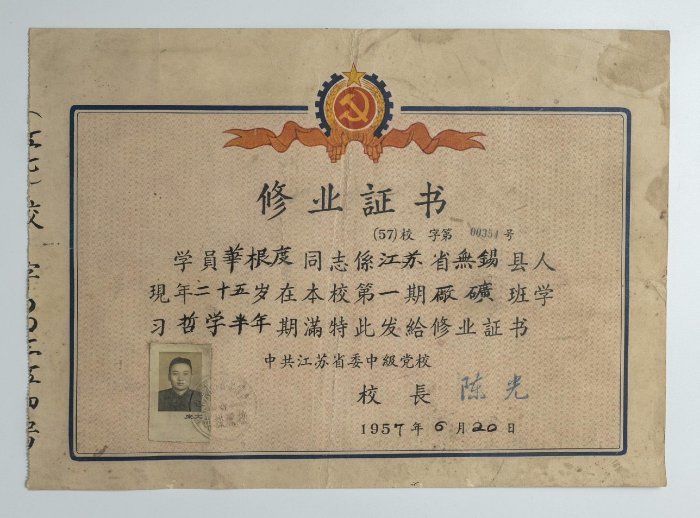 修业証书
(57)校 字第 00354 号
学員華根度同志係江苏省無錫县人
現年二十五岁在本校第一期厰礦班学
习哲学半年期滿特此发給修业証书
中共江苏省委中級党校
校長 陈光
1957年6月20日